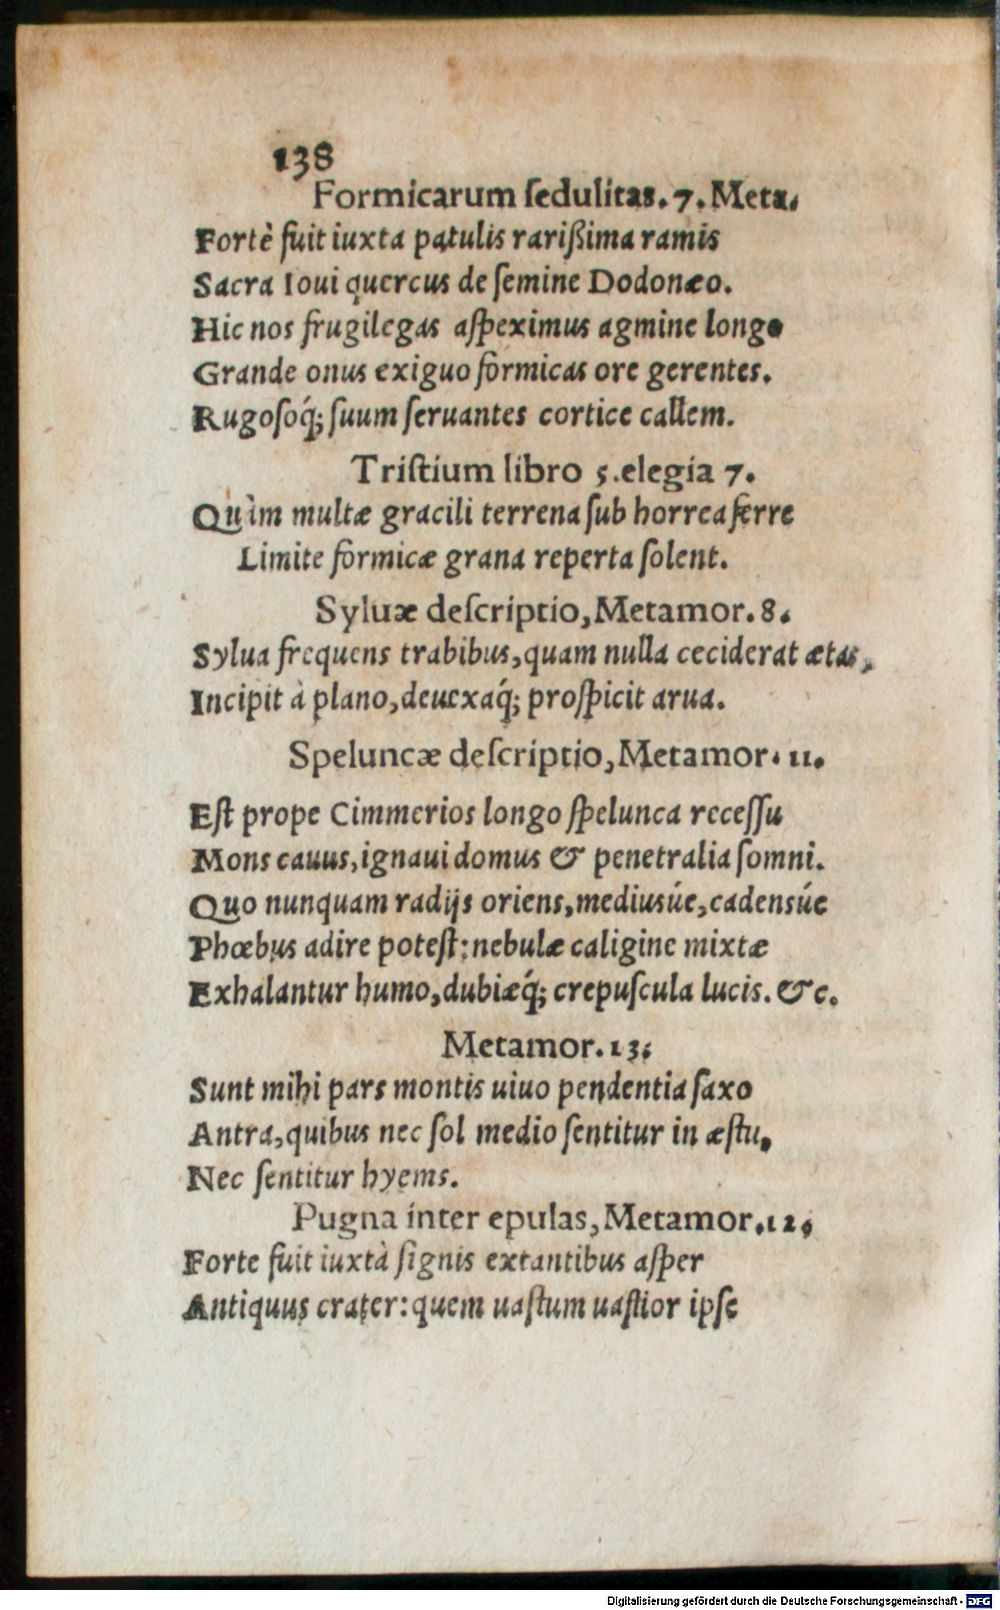 138
Formicarum ſedulitas. 7. Meta.
Fortè fuit iuxta patulis rarißima ramis
Sacra Ioui quercus de ſemine Dodonæo.
Hic nos frugilegas aſpeximus agmine longo
Grande onus exiguo formicas ore gerentes.
Rugoſoq́; ſuum ſeruantes cortice callem.
Triſtium libro 5. elegia 7.
Quàm multæ gracili terrena ſub horrea ferre
Limite formicæ grana reperta ſolent.
Syluæ deſcriptio, Metamor. 8.
Sylua frequens trabibus, quam nulla ceciderat ætas,
Incipit à plano, deuexaq́; proſpicit arua.
Speluncæ deſcriptio, Metamor. 11.
Eſt prope Cimmerios longo ſpelunca receſſu
Mons cauus, ignaui domus & penetralia ſomni.
Quo nunquam radijs oriens, mediusúe, cadensúe
Phœbus adire poteſt: nebulæ caligine mixtæ
Exhalantur humo, dubiæq́; crepuſcula lucis. &c.
Metamor. 13.
Sunt mihi pars montis uiuo pendentia ſaxo
Antra, quibus nec ſol medio ſentitur in æſtu,
Nec ſentitur hyems.
Pugna inter epulas, Metamor. 12.
Forte fuit iuxtà ſignis extantibus aſper
Antiquus crater: quem uaſtum uaſtior ipſe
Digitalisierung gefördert durch die Deutsche Forschungsgemeinschaft - DFG